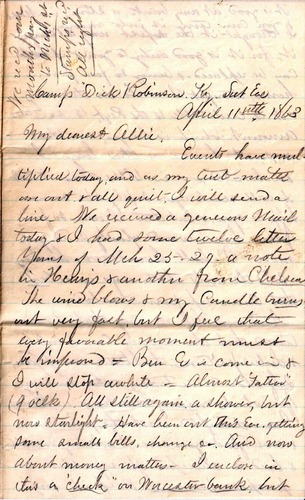 We need four
months pay
to
Stamps and
All right
Camp Dick Robinson. Ky. Sat Eve
April 11th 1863
My dearest Allie.
Events have mul
tiplied today, and as my tent-mates
are out & all quiet, I will send a
line. We received a generous Mail
today & I had some twelve letters
Yours of Mch 25-29 - a note
in & another from Chelsea
The wind blows & my Candle burns
out very fast, but I feel that
every favorable moment must
be improved = Ben E is come in &
I will stop awhile - Almost Tattoo
(9 o'clk) All still again, a shower, but
now starlight. Have been out this Eve. getting
some small bills, change &c. And now
about money matters - I enclose in
this a "check" on Worcester bank, but